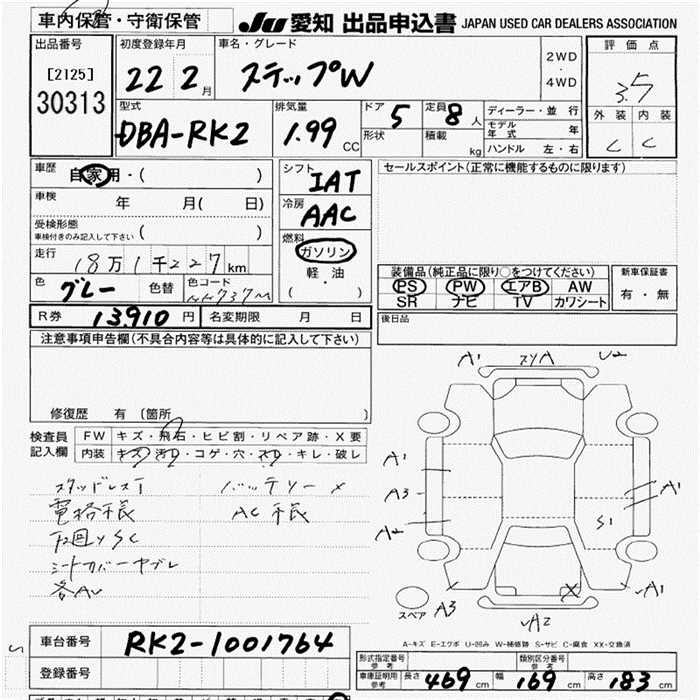 車内保管・守衛保管
JU 愛知 出品申込書 JAPAN USED CAR DEALERS ASSOCIATION
出品番号 初度登録年月 車名・グレード 2WD・4WD 評価点
[2125] 22 2月 ステップW 3.5
30313 型式 排気量 ドア 5 定員 8人 ディーラー・並行 外装 内装
DBA-RK2 1.99 CC 形状 積載 kg モデル年式 年 C C
ハンドル 左・右
車歴 自家用・( ) シフト IAT セールスポイント(正常に機能するものに限ります)
車検 年 月( 日) 冷房 AAC
受検形態 ( )
車検付きのみ記入して下さい
燃料 ガソリン
走行 18万1千227km 軽・油 装備品(純正品に限り○をつけてください) 新車保証書
色 グレー 色替 色コード NH737M ( ・ ) PS PW エアB AW 有・無
SR ナビ TV カワシート
R券 13,910円 名変期限 月 日 後日品
注意事項申告欄(不具合内容等は具体的に記入して下さい)
修復歴 有 (箇所 )
検査員記入欄 FW キズ・飛石・ヒビ割・リペア跡・X要
内装 キズ・汚レ・コゲ・穴・スレ・キレ・破レ
スタッドレスT バッテリー×
AC
A1 U2
A1 A1
A3
A2 S1
A1
スペア A3 A2
A-キズ E-エクボ U-凹み W-補修跡 S-サビ C-腐食 XX-交換済
車台番号 RK2-1001764
登録番号
形式指定番号 参考 類別区分番号 参考
車庫証明用 参考 長さ 469cm 幅 169cm 高さ 183cm